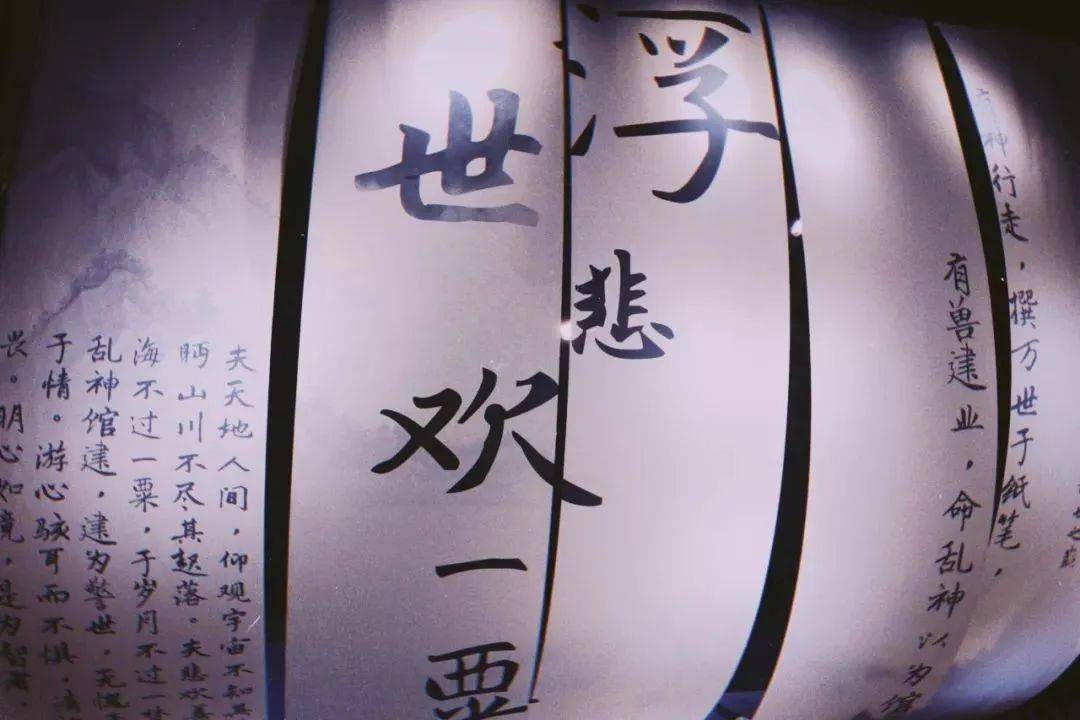 神行走，撰万世于纸笔，
有兽建业，命乱神以为馆
浮
悲
世
欢
一
粟
夫天地人间，仰观宇宙不知其
眄山川不尽其起落。夫悲欢
海不过一粟，于岁月不过一
乱神馆建，建为警世，无愧
于情。游心骇耳而不惧，
畏。明心如境，是为智